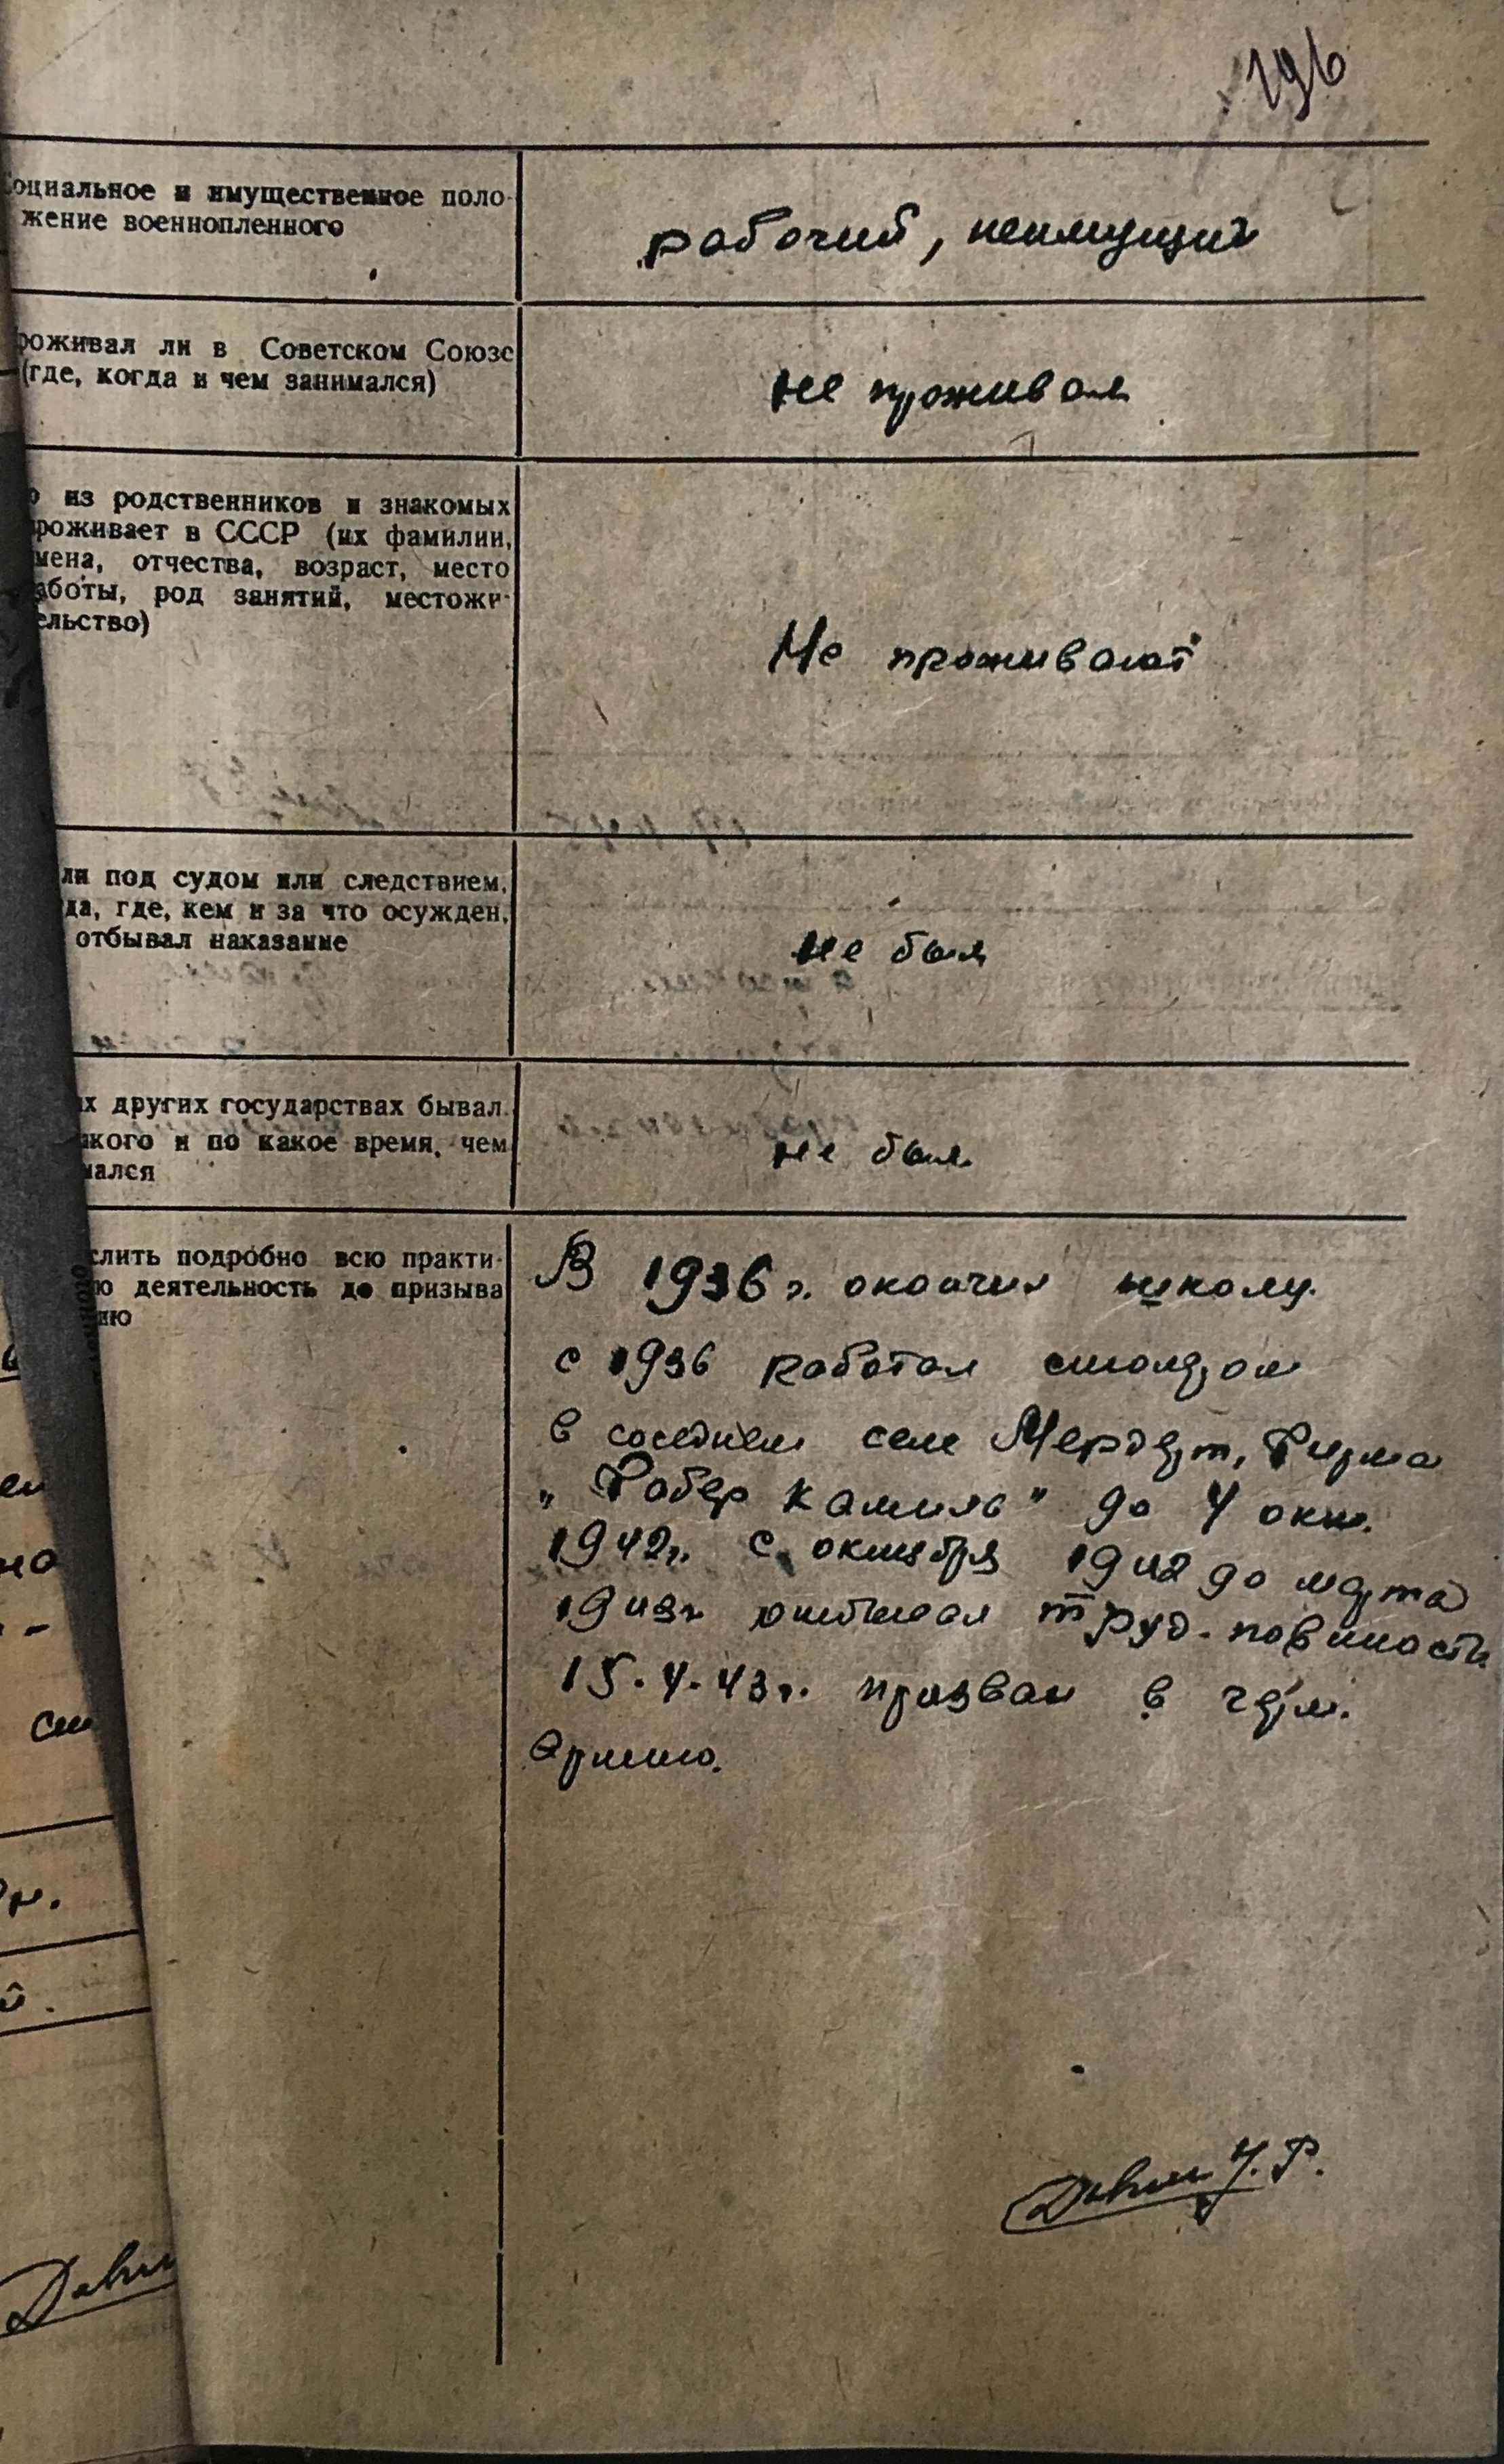 196
оциальное и имущественное поло-
жение военнопленного
рабочий, неимущий
роживал ли в Советском Союзе
(где, когда и чем занимался)
не проживал
о из родственников и знакомых
роживает в СССР (их фамилии,
мена, отчества, возраст, место
аботы, род занятий, местожи-
ельство)
Не проживают
ли под судом или следствием,
да, где, кем и за что осужден,
отбывал наказание
не был
их других государствах бывал.
акого и по какое время, чем
мался
не был
слить подробно всю практи-
ю деятельность до призыва
ию
В 1936 г. окончил школу.
с 1936 работал столяром
в соседнем селе Мерцут, Фирма
„Фабер Камиль" до 4 окт.
1942г. С октября 1942 до марта
1943г отбывал труд. повиность
15.4.43г. призван в герм.
Армию.